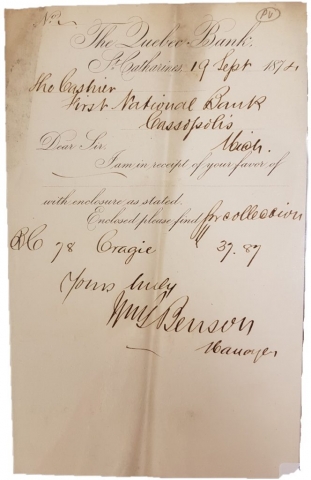 No.
The Quebec Bank.
St. Catharines, 19 Sept 1874
The Cashier
First National Bank
Cassopolis
Mich.
Dear Sir.
I am in receipt of your favor of
with enclosure as stated.
Enclosed please find for collection
BC 78 Cragie $ 37.87
Yours truly
Benson
Manager